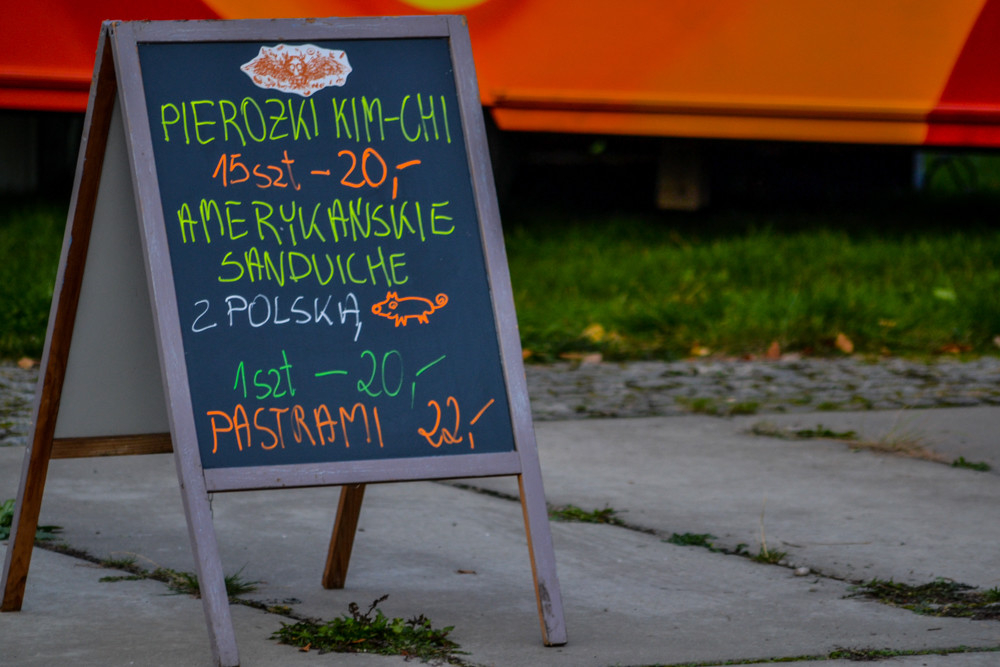 PIEROŻKI KIM-CHI
15szt – 20,-
AMERYKAŃSKIE
SANDUICHE
Z POLSKĄ
1szt – 20,-
PASTRAMI 22,-